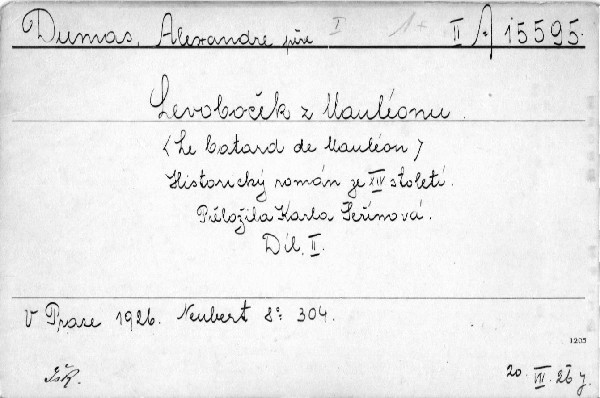 Dumas, Alexandre père I 1+ II A 15595.
Levoboček z Mauléonu.
(Le batard de Mauléon)
Historický román ze XIV století.
Přeložila Karla Šeřínová.
Díl, II.
V Praze 1926. Neubert 8° 304.
1205
20. VII. 26